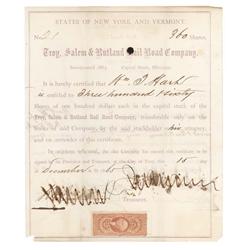 STATES OF NEW YORK AND VERMONT.
No 21 360 Shares,
Troy, Salem & Rutland Rail Road Company.
Incorporated 1865. Capital Stock,
It is hereby certified that Wm T. Hart
is entitled to Three hundred Sixty
Shares of one hundred dollars each in the capital stock of the
Troy, Salem & Rutland Rail Road Company, transferable only on the
Books of said Company, by the said stockholder his
and on surrender of this certificate.
In testimony whereof, the said Company has caused this certificate to be
signed by its President and Treasurer, at this 15 day
of December
Treasurer.